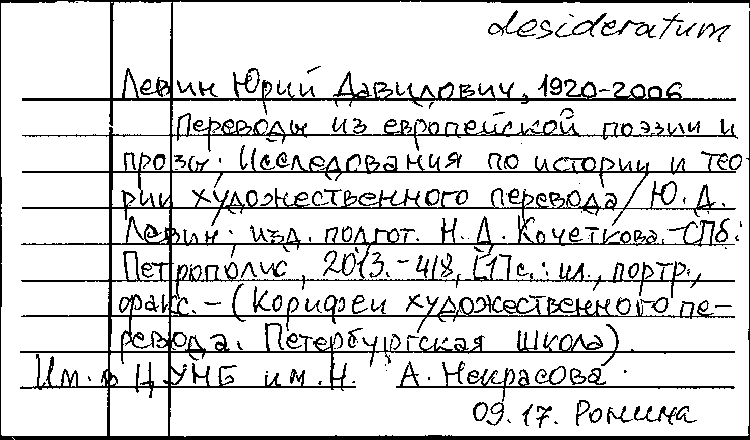 desideratum
Левин Юрий Давидович, 1920-2006
Переводы из европейской поэзии и
прозы; Исследования по истории и тео
рии художественного перевода/Ю.Д.
Левин; изд. подгот. Н.Д. Кочеткова.-СПб:
Петрополис, 2013.-418, [1]с.: ил., портр.,
факс.-(Корифеи художественного пе-
ревода. Петербургская школа).
Им. в ЦУНБ им. Н. А. Некрасова.
09.17. Ронина